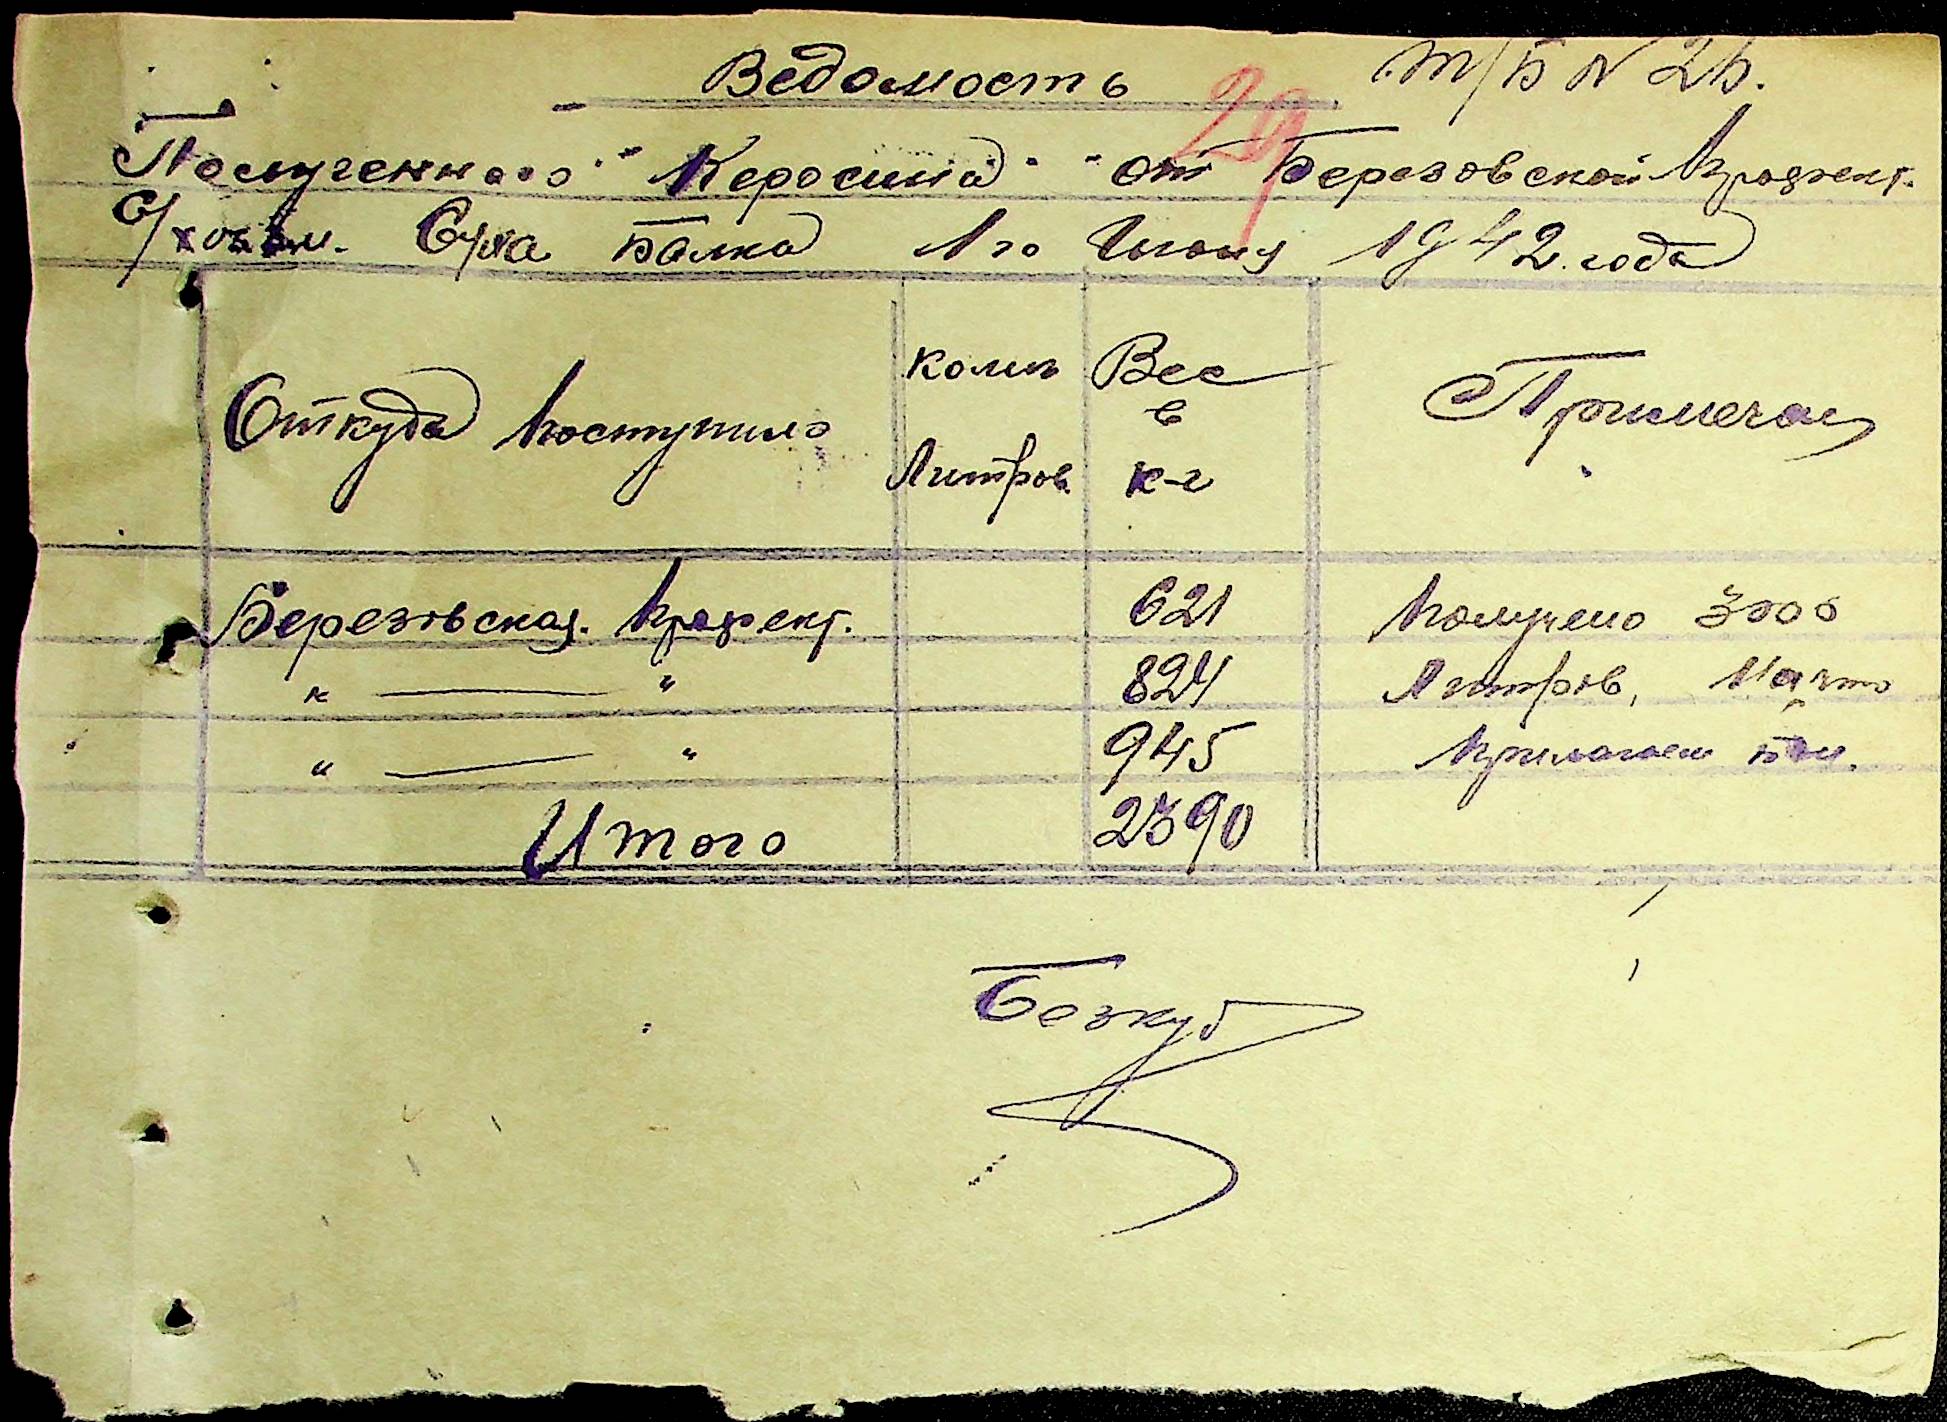 Ведомость
29
Полученного Керосина от Березовской Префект.
Суха Балка 1го Июня 1942 года
Откуда Поступило
Колич Литров
Вес в к-г
Примечан
Березовская Префект. 621 Получено 3000
" — " 824 Литров, На что
" — " 945 прилагаем
Итого 2390
Безкуб